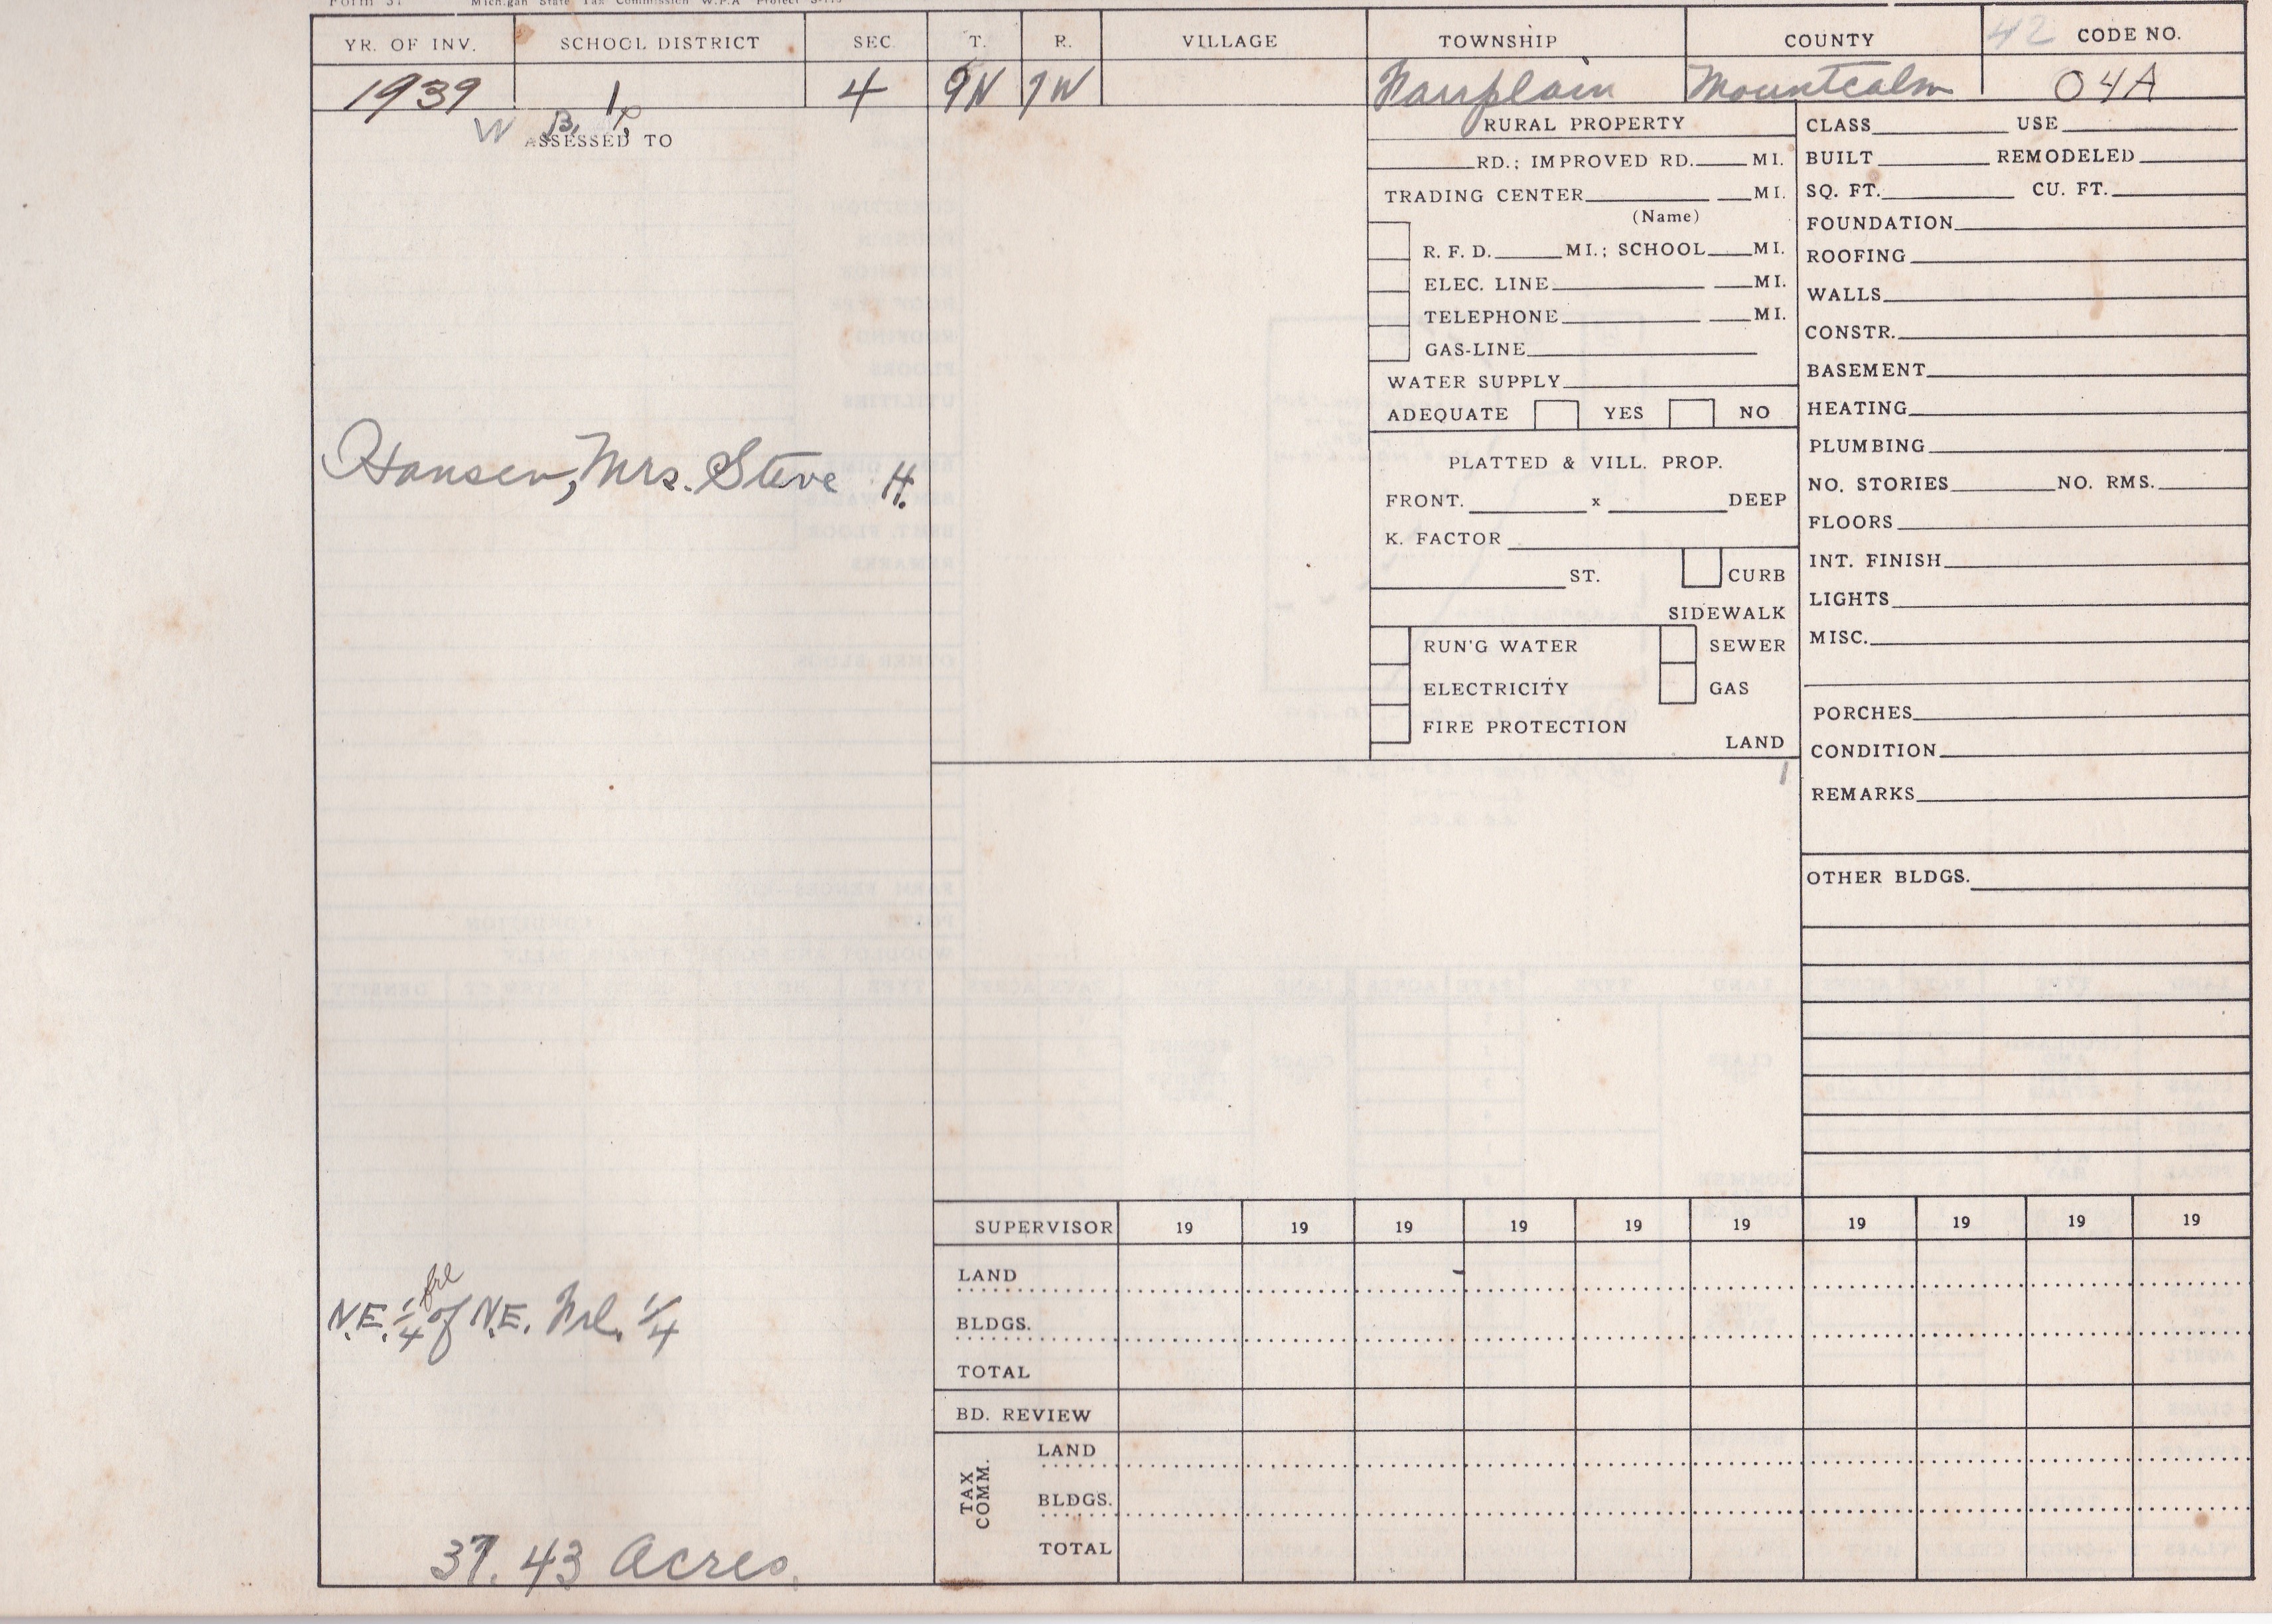 Form 51 Michigan State Tax Commission W.P.A Project
YR. OF INV. SCHOOL DISTRICT SEC. T. R. VILLAGE TOWNSHIP COUNTY 42 CODE NO.
1939 1 4 9N 7W Fairplain Mountcalm 04A
W B.
ASSESSED TO
Hansen, Mrs. Steve H.
N.E. 1/4 frl of N.E. Frl. 1/4
37.43 Acres.
RURAL PROPERTY
RD.; IMPROVED RD. MI.
TRADING CENTER MI.
(Name)
R. F. D. MI.; SCHOOL MI.
ELEC. LINE MI.
TELEPHONE MI.
GAS-LINE
WATER SUPPLY
ADEQUATE YES NO
PLATTED & VILL. PROP.
FRONT. x DEEP
K. FACTOR
ST. CURB
SIDEWALK
RUN'G WATER SEWER
ELECTRICITY GAS
FIRE PROTECTION
LAND
CLASS USE
BUILT REMODELED
SQ. FT. CU. FT.
FOUNDATION
ROOFING
WALLS
CONSTR.
BASEMENT
HEATING
PLUMBING
NO. STORIES NO. RMS.
FLOORS
INT. FINISH
LIGHTS
MISC.
PORCHES
CONDITION
REMARKS
OTHER BLDGS.
SUPERVISOR 19 19 19 19 19 19 19 19 19 19
LAND
BLDGS.
TOTAL
BD. REVIEW
TAX COMM.
LAND
BLDGS.
TOTAL